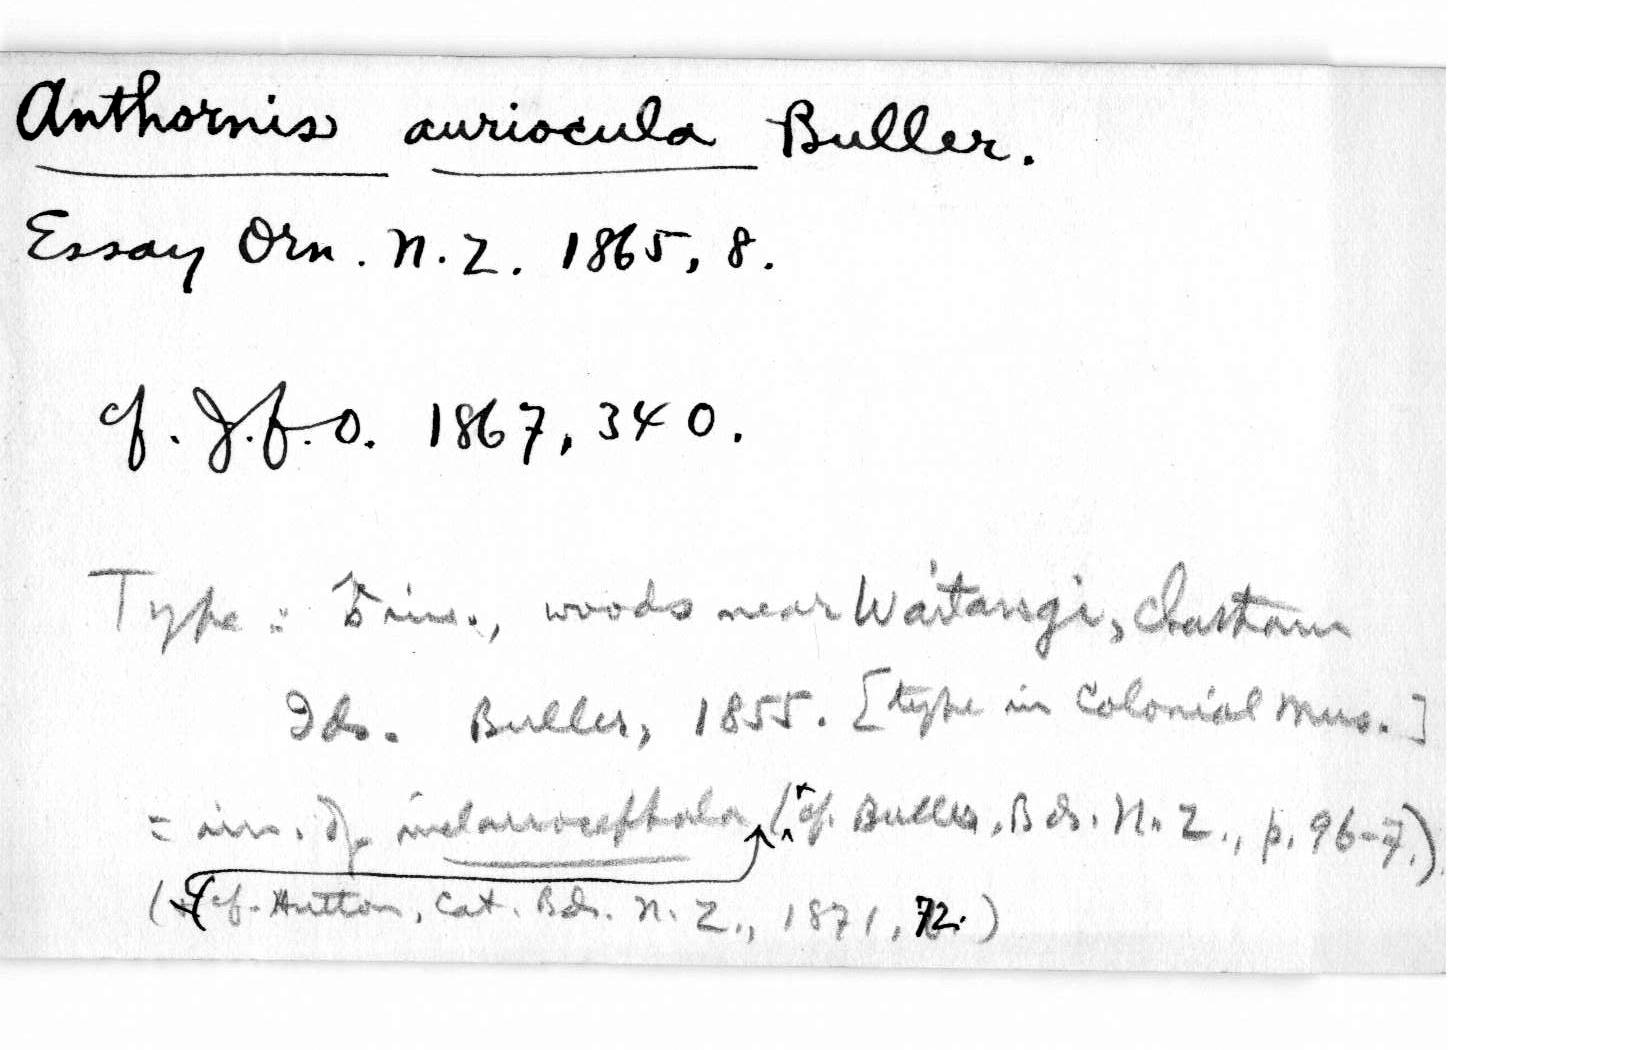 Anthornis auriocula Buller.
Essay Orn. N.Z. 1865, 8.
cf. J.f.O. 1867, 340.
Type: imm., woods near Waitangi, Chatham
Ids. Buller, 1855. [type in Colonial Mus.]
= imm. of melanocephala (cf. Buller, Bds. N.Z., p. 96-7.)
(cf. Hutton, Cat. Bds. N.Z., 1871, 72.)